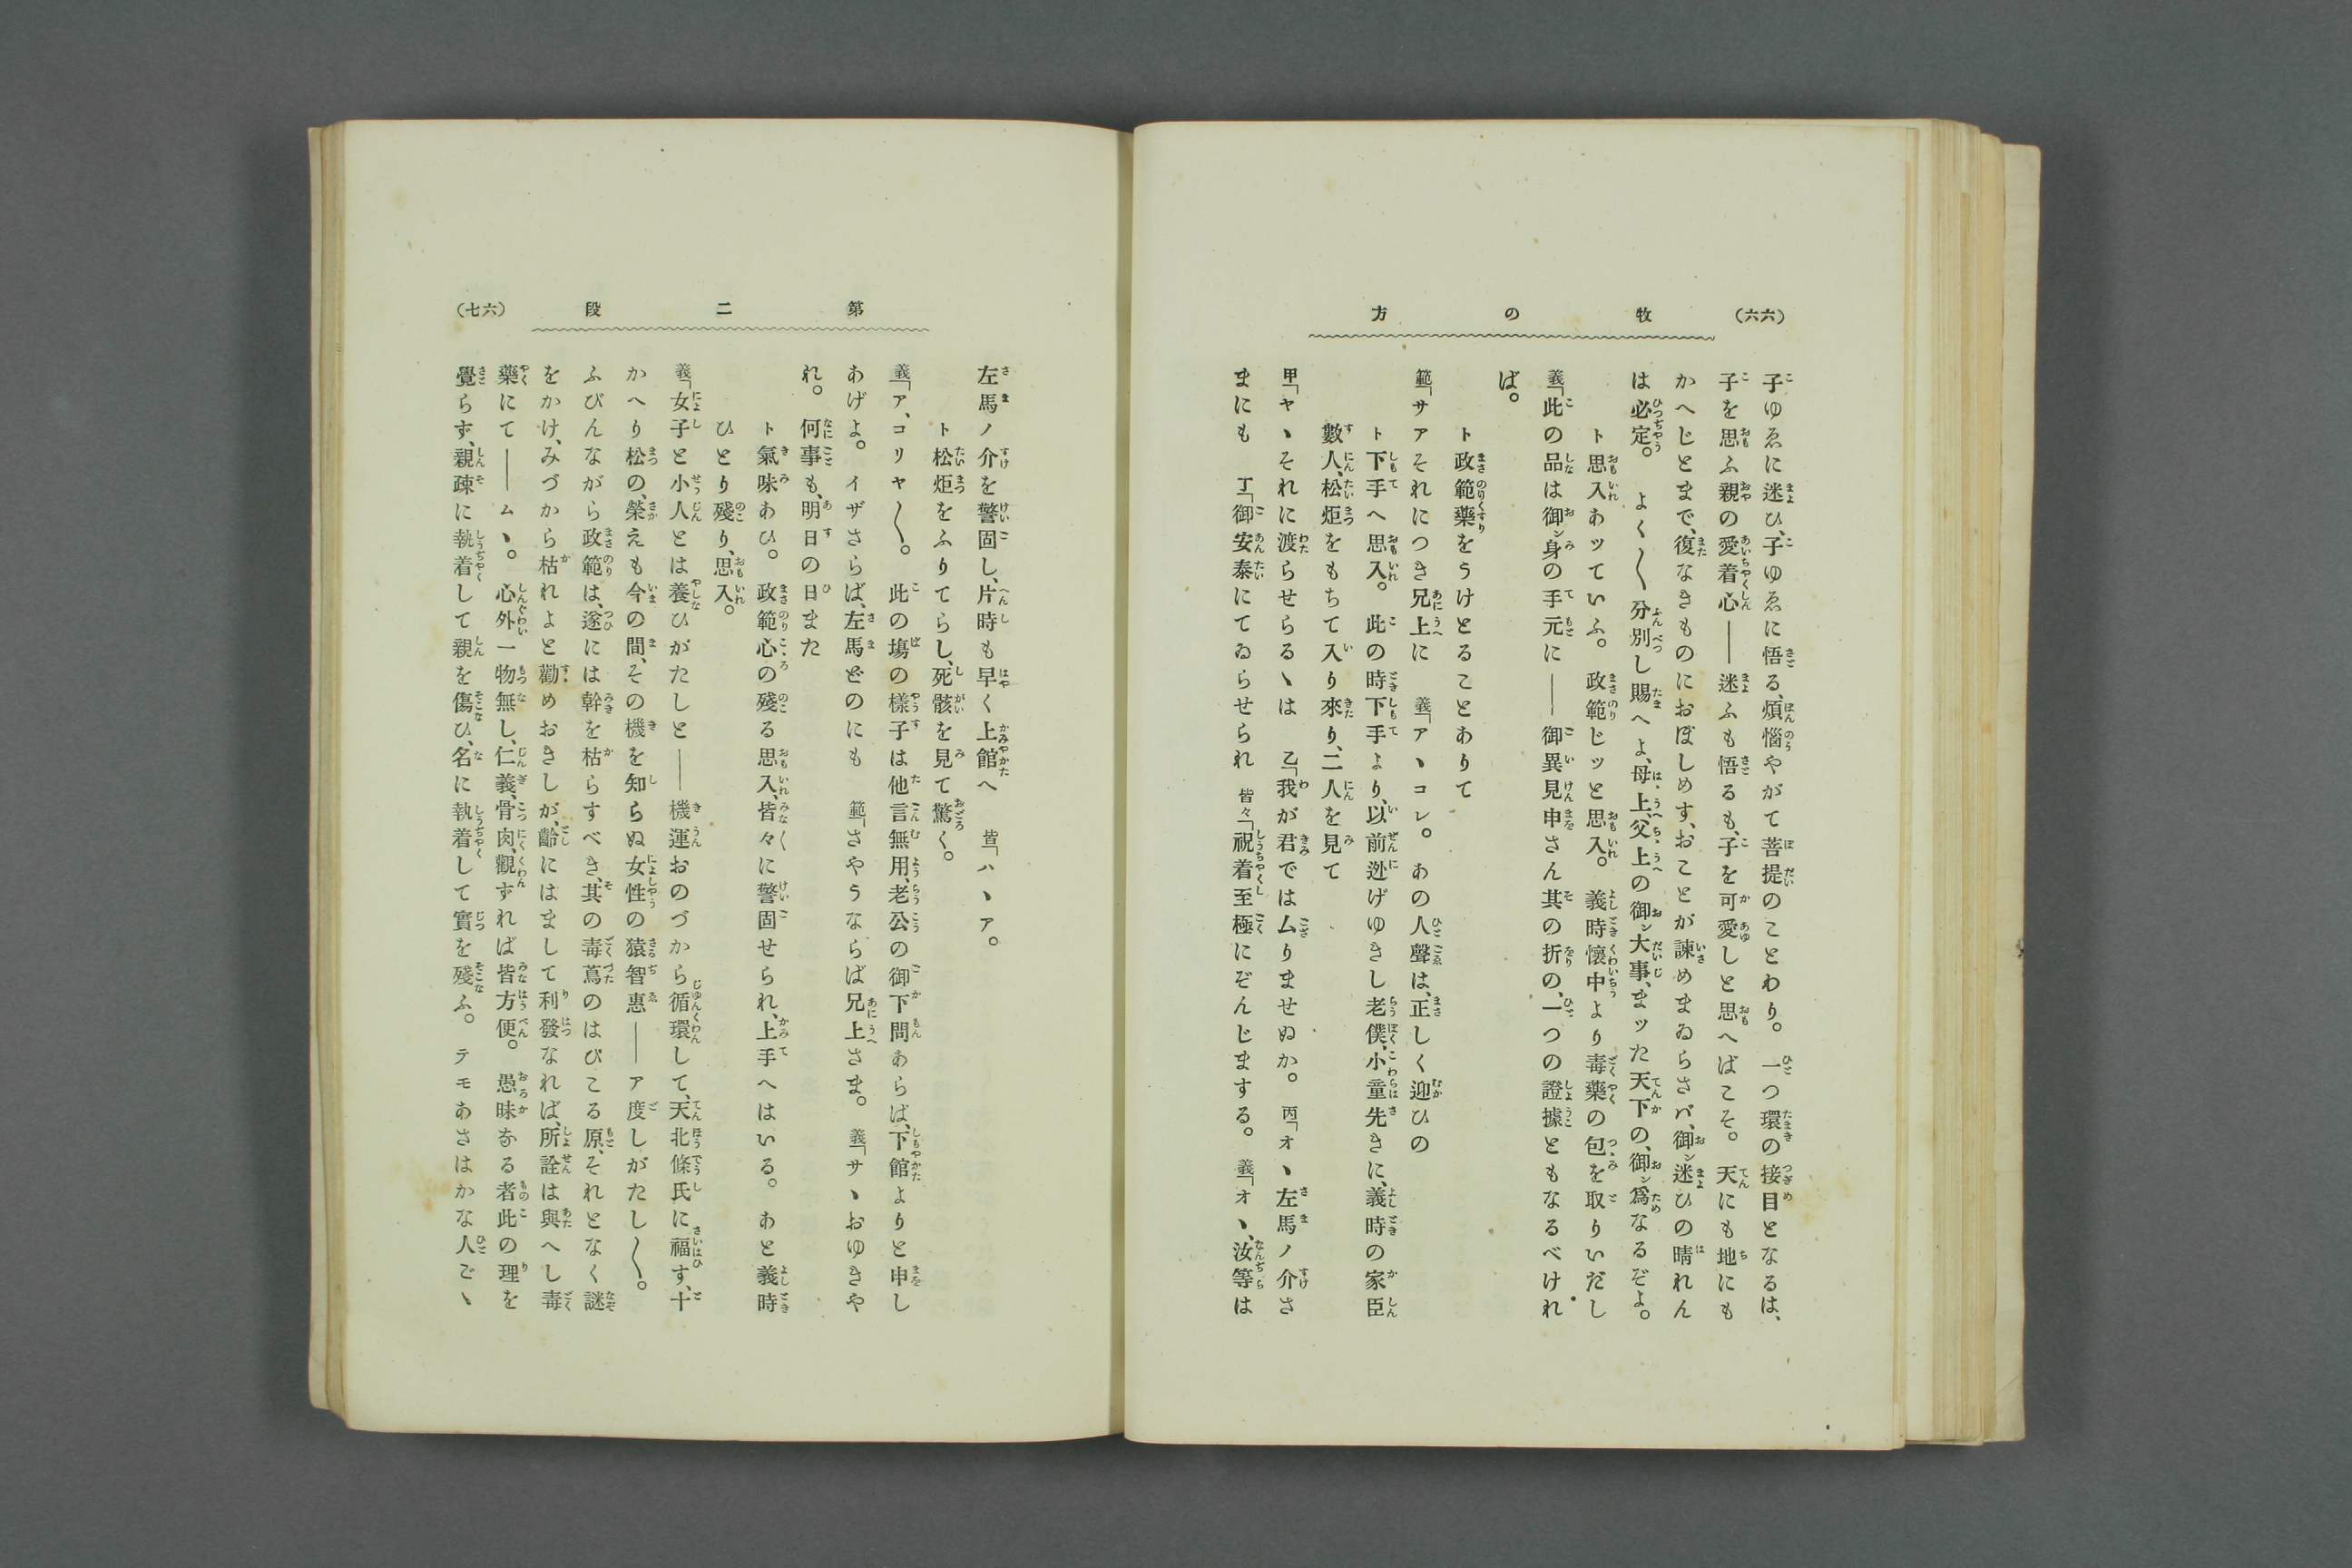 （六六）
牧の方
子ゆゑに迷ひ、子ゆゑに悟る、煩惱やがて菩提のことわり。　一つ環の接目となるは、
子を思ふ親の愛着心――迷ふも悟るも、子を可愛しと思へばこそ。　天にも地にも
かへじとまで、復なきものにおぼしめす、おことが諫めまゐらさバ、御ン迷ひの晴れん
は必定。　よく〳〵分別し賜へよ、母上、父上の御ン大事、まッた天下の、御ン爲なるぞよ。
ト思入あッていふ。　政範じッと思入。　義時懷中より毒藥の包を取りいだし
義「此の品は御ン身の手元に――御異見申さん其の折の、一つの證據ともなるべけれ
ば。
ト政範藥をうけとることありて
範「サアそれにつき兄上に　義「アヽコレ。　あの人聲は、正しく迎ひの
ト下手へ思入。　此の時下手より、以前迯げゆきし老僕、小童先きに、義時の家臣
數人、松炬をもちて入り來り、二人を見て
甲「ヤヽそれに渡らせらるゝは　乙「我が君ではムりませぬか。　丙「オヽ左馬ノ介さ
まにも　丁「御安泰にてゐらせられ　皆々「祝着至極にぞんじまする。　義「オヽ、汝等は
第二段
（六七）
左馬ノ介を警固し、片時も早く上館へ　皆「ハヽア。
ト松炬をふりてらし、死骸を見て驚く。
義「ア、コリヤ〳〵。　此の塲の樣子は他言無用、老公の御下問あらば、下館よりと申し
あげよ。　イザさらば、左馬どのにも　範「さやうならば兄上さま。　義「サヽおゆきや
れ。　何事も、明日の日また
ト氣味あひ。　政範心の殘る思入、皆々に警固せられ、上手へはいる。　あと義時
ひとり殘り、思入。
義「女子と小人とは養ひがたしと――機運おのづから循環して、天北條氏に福す、十
かへり松の、榮えも今の間、その機を知らぬ女性の猿智惠――ア度しがたし〳〵。
ふびんながら政範は、遂には幹を枯らすべき、其の毒蔦のはびこる原、それとなく謎
をかけ、みづから枯れよと勸めおきしが、齡にはまして利發なれば、所詮は與へし毒
藥にて――ムヽ。　心外一物無し、仁義、骨肉、觀ずれば皆方便。　愚昧なる者此の理を
覺らず、親疎に執着して親を傷ひ、名に執着して實を殘ふ。　テモあさはかな人ごゝ